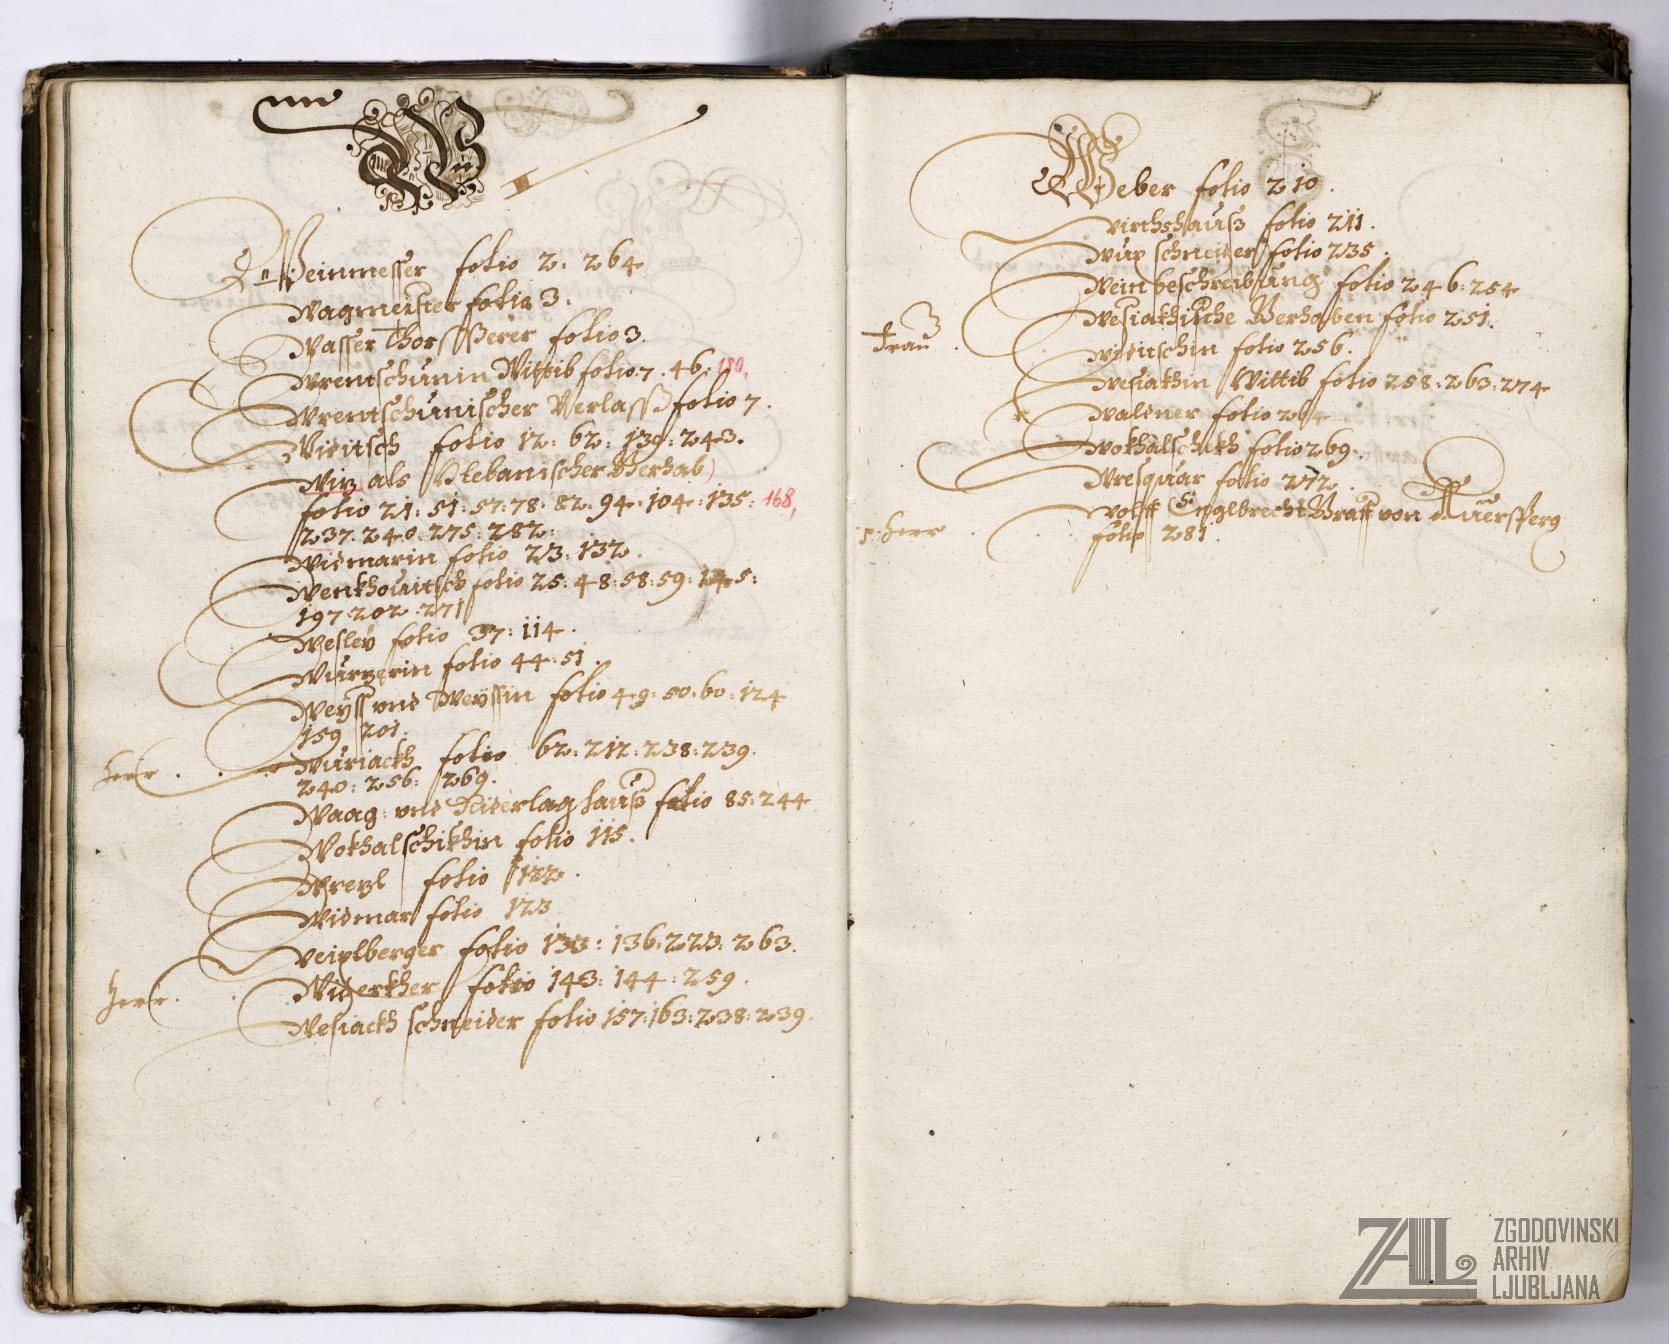 W
Weinmesser folio 2. 264
Wagmeister folio 3.
Wasser Thor Sperer folio 3.
Wrentschunin Wittib folio 7. 46. 180,
Wrentschunischer Verlass folio 7.
Widitsch folio 12: 62: 139: 243.
Wirz als Plebanischer Gerhab
folio 21: 51: 57: 78: 82. 94. 104: 135: 168,
237. 240: 275: 282.
Widmarin folio 23: 132.
Wenkhouitsch folio 25: 48: 58: 59: 145:
197. 202. 271
Wesley folio 37: 114.
Wurzerin folio 44: 51.
Weyss vnd Weyssin folio 49: 50: 60: 124
159 201.
Herr. Wuriackh folio 62: 212: 238: 239.
240: 256: 269.
Waag: vnd Niderlag hauß folio 85: 244
Wokhalschikhin folio 115.
Wrezl folio 122.
Widmar folio 123
Weixlberger folio 133: 136: 223: 263.
Herr. Widerkher folio 143: 144: 259.
Wesiackh schneider folio 157: 163: 238: 239.
Weber folio 210.
Wirthshauß folio 211.
schneider folio 235.
Wein beschreibung folio 246: 254
Wesiakhische Gerhaben folio 251.
Frau. Widitschin folio 256.
Wesiakhin Wittib folio 258: 263: 274
Waldner folio 264
Wokhalschekh folio 269.
Wresquar folio 272.
Herr Wolff Englbrecht Graff von Auersperg
folio 281.
ZAL
ZGODOVINSKI
ARHIV
LJUBLJANA